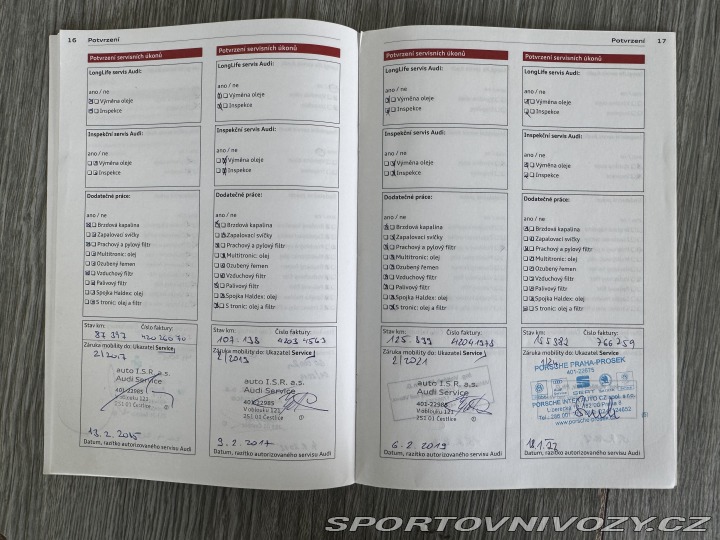 16 Potvrzení
Potvrzení servisních úkonů
LongLife servis Audi:
ano / ne
Výměna oleje
Inspekce
Inspekční servis Audi:
ano / ne
Výměna oleje
Inspekce
Dodatečné práce:
ano / ne
Brzdová kapalina
Zapalovací svíčky
Prachový a pylový filtr
Multitronic: olej
Ozubený řemen
Vzduchový filtr
Palivový filtr
Spojka Haldex: olej
S tronic: olej a filtr
Stav km: Číslo faktury:
87 397
Záruka mobility do: Ukazatel Service
2/2017
auto I.S.R. a.s.
Audi Service
401-22985
V oblouku 121
251 01 Čestlice
13. 2. 2015
Datum, razítko autorizovaného servisu Audi
Potvrzení servisních úkonů
LongLife servis Audi:
ano / ne
Výměna oleje
Inspekce
Inspekční servis Audi:
ano / ne
Výměna oleje
Inspekce
Dodatečné práce:
ano / ne
Brzdová kapalina
Zapalovací svíčky
Prachový a pylový filtr
Multitronic: olej
Ozubený řemen
Vzduchový filtr
Palivový filtr
Spojka Haldex: olej
S tronic: olej a filtr
Stav km: Číslo faktury:
107 138 4203 4563
Záruka mobility do: Ukazatel Service
2/2019
auto I.S.R. a.s.
Audi Service
401-22985
V oblouku 121
251 01 Čestlice
9. 2. 2017
Datum, razítko autorizovaného servisu Audi
Potvrzení 17
Potvrzení servisních úkonů
LongLife servis Audi:
ano / ne
Výměna oleje
Inspekce
Inspekční servis Audi:
ano / ne
Výměna oleje
Inspekce
Dodatečné práce:
ano / ne
Brzdová kapalina
Zapalovací svíčky
Prachový a pylový filtr
Multitronic: olej
Ozubený řemen
Vzduchový filtr
Palivový filtr
Spojka Haldex: olej
S tronic: olej a filtr
Stav km: Číslo faktury:
125 899
Záruka mobility do: Ukazatel Service
2/2021
auto I.S.R. a.s.
Audi Service
401-22985
V oblouku 121
251 01 Čestlice
6. 2. 2019
Datum, razítko autorizovaného servisu Audi
Potvrzení servisních úkonů
LongLife servis Audi:
ano / ne
Výměna oleje
Inspekce
Inspekční servis Audi:
ano / ne
Výměna oleje
Inspekce
Dodatečné práce:
ano / ne
Brzdová kapalina
Zapalovací svíčky
Prachový a pylový filtr
Multitronic: olej
Ozubený řemen
Vzduchový filtr
Palivový filtr
Spojka Haldex: olej
S tronic: olej a filtr
Stav km: Číslo faktury:
155 382 766 259
Záruka mobility do: Ukazatel Service
PORSCHE PRAHA-PROSEK
401-22675
SEAT
Datum, razítko autorizovaného servisu Audi
SPORTOVNIVOZY.CZ